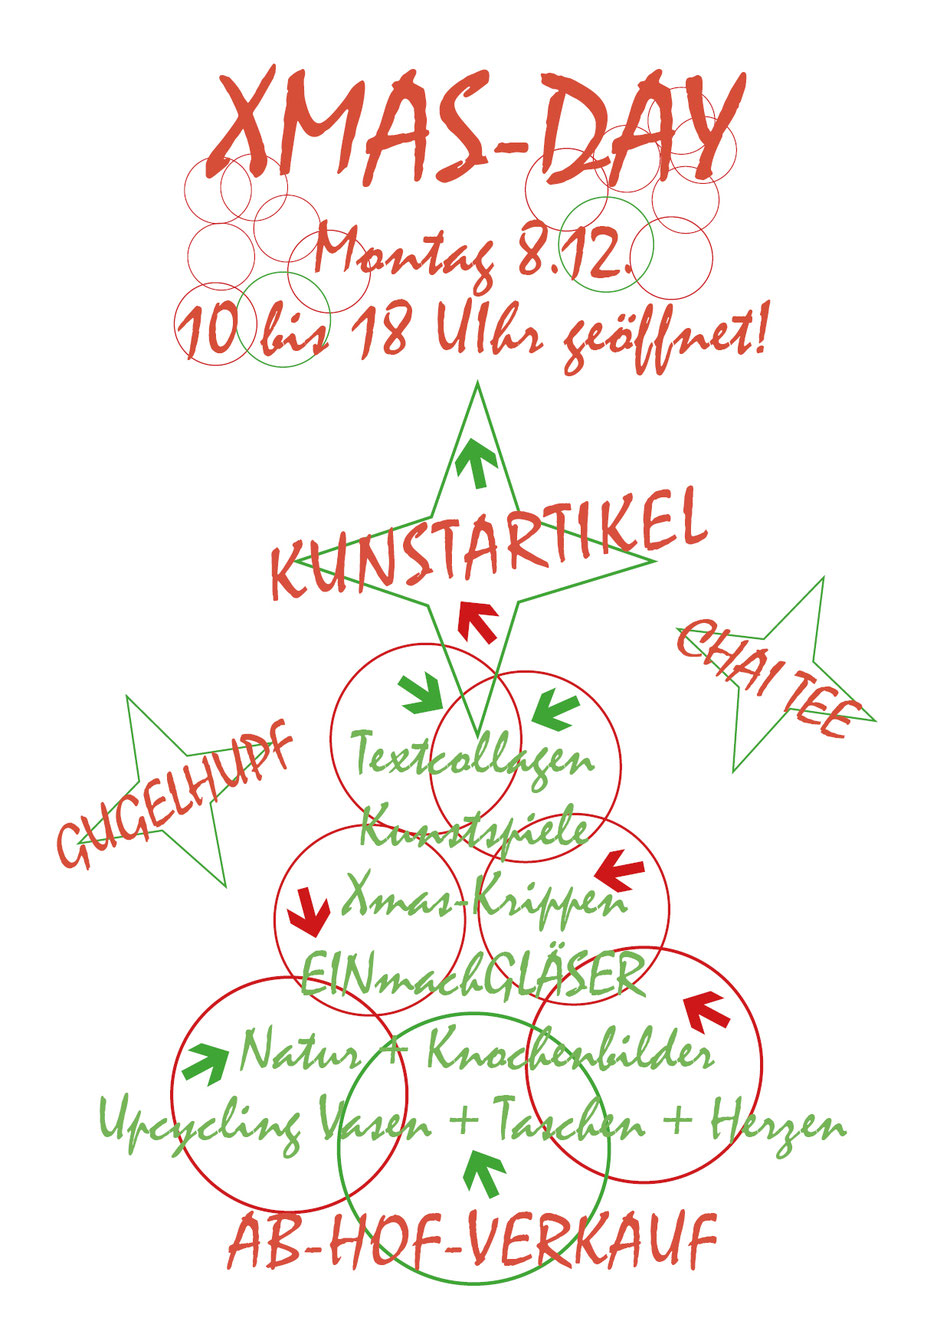 XMAS-DAY
Montag 8.12.
10 bis 18 UIhr geöffnet!
KUNSTARTIKEL
CHAI TEE
GUGELHUPF
Textcollagen
Kunstspiele
Xmas-Krippen
EINmachGLÄSER
Natur + Knochenbilder
Upcycling Vasen + Taschen + Herzen
AB-HOF-VERKAUF